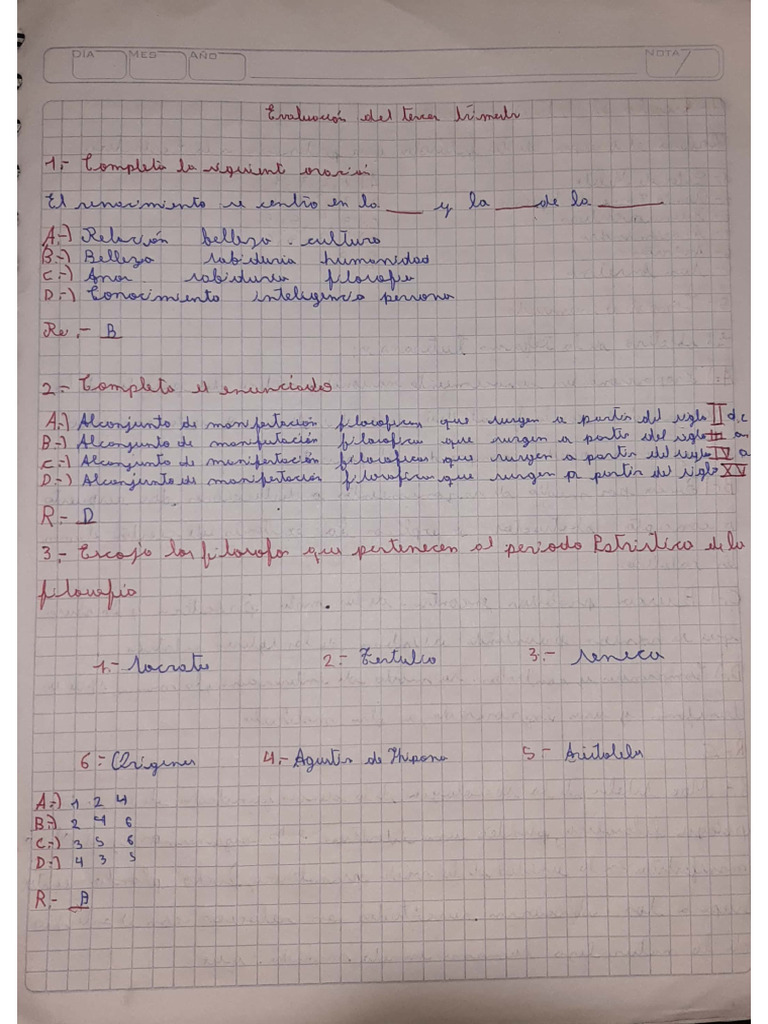 DÍA MES AÑO NOTA
Evaluación del tercer trimestr
1.- Completa la siguient oración
El renacimiento se centro en la ____ y la ____ de la ____
A.-) Relación belleza cultura
B.-) Belleza sabiduria humanidad
C.-) Amor sabiduria filosofia
D.-) Conocimiento inteligencia persona
Re.- B
2.- Completa el enunciado
A.-) Al conjunto de manifestación filosoficas que surgen a partir del siglo II d.c
B.-) Al conjunto de manifestación filosoficas que surgen a partir del siglo III an
C.-) Al conjunto de manifestación filosoficas que surgen a partir del siglo IV a
D.-) Al conjunto de manifestación filosoficas que surgen a partir del siglo XV
R.- D
3.- Escoja los filosofos que pertenecen al periodo Patristica de la
filosofia
1.- Socrates 2.- Tertulco 3.- Seneca
6.- Origenes 4.- Agustin de Hipona 5.- Aristoteles
A.-) 1 2 4
B.-) 2 4 6
C.-) 3 5 6
D.-) 4 3 5
R.-